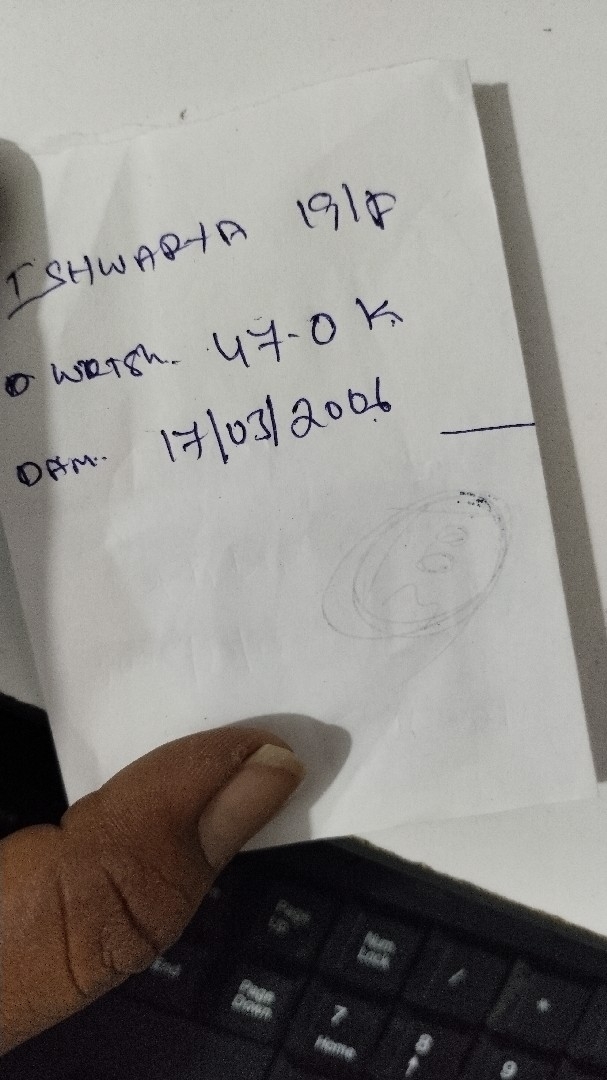 ISHWARYA 19/F
WEIGH. 47.0 K
17/03/2006
Page Up
Num Lock
/
*
End
Page Down
7 Home
8 ↑
9